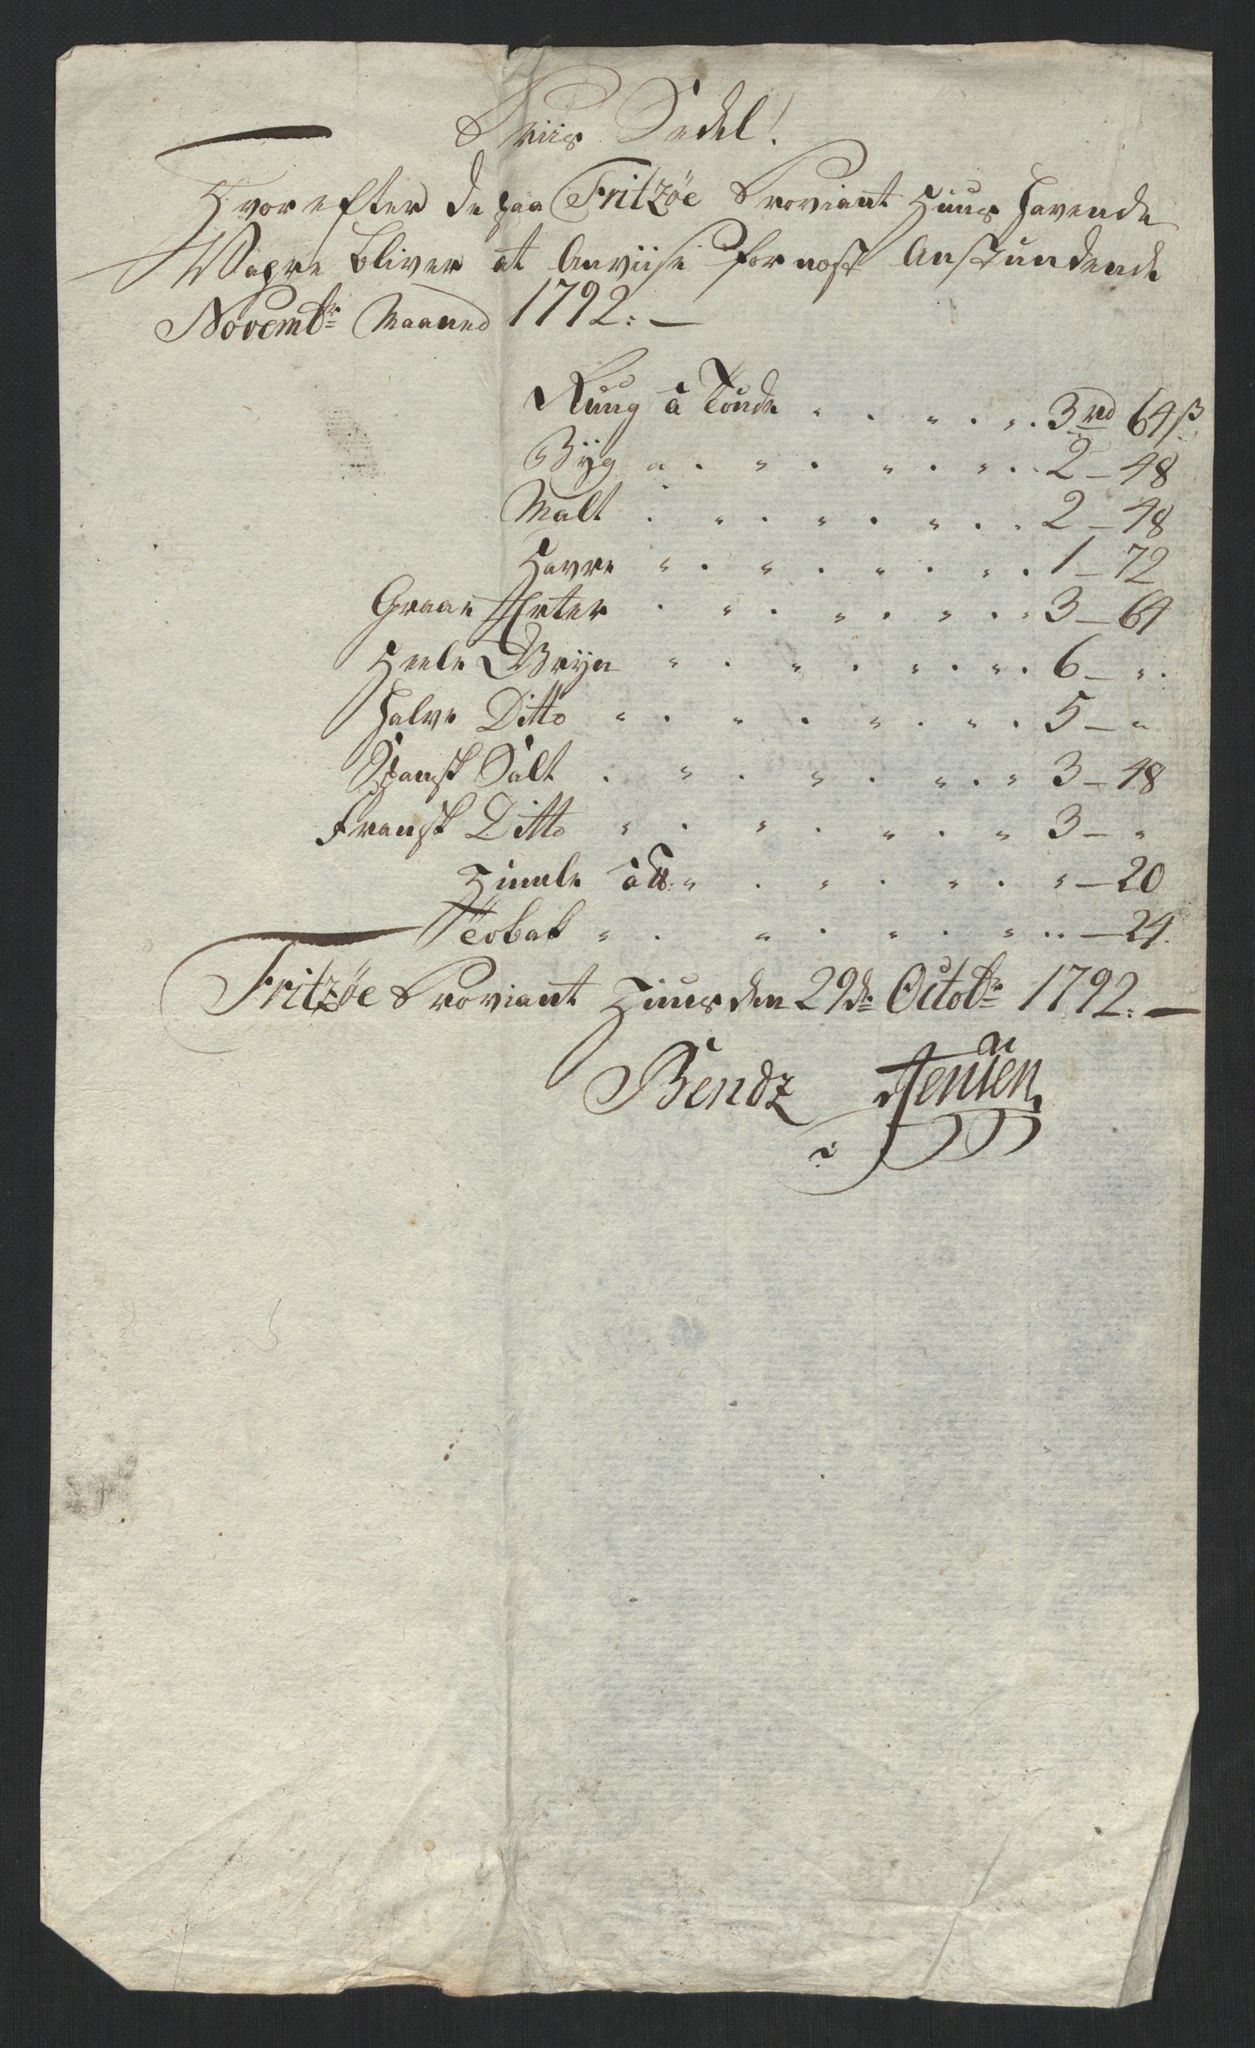 Priis Sedel!
Hvorefter de paa Fritzöe Proviant Huus havende
Vahre bliver at Anviise for næst Anstundende
Novembr Maaned 1792:—
Ruug à Tönde 3 rd 64 ß
Byg a 2 — 48
Malt 2 — 48
Havre 1 — 72
Graae Erter 3 — 64
Heele Gryn 6 — "
Halve Ditto 5 — "
Spansk Salt 3 — 48
Fransk Ditto 3 — "
Humle à ℔: " — 20
Tobak " — 24.
Fritzöe Proviant Huus den 29de Octobr 1792:—
Bendz Jensen